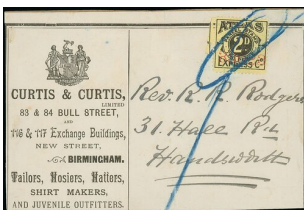 ATLAS
2D
EXPRESS Co
CURTIS & CURTIS,
LIMITED
83 & 84 BULL STREET,
AND
116 & 117 Exchange Buildings,
NEW STREET,
BIRMINGHAM.
Tailors, Hosiers, Hatters,
SHIRT MAKERS,
AND JUVENILE OUTFITTERS.
Rev. K. R. Rodgers
31. Hall Rd
Handsworth